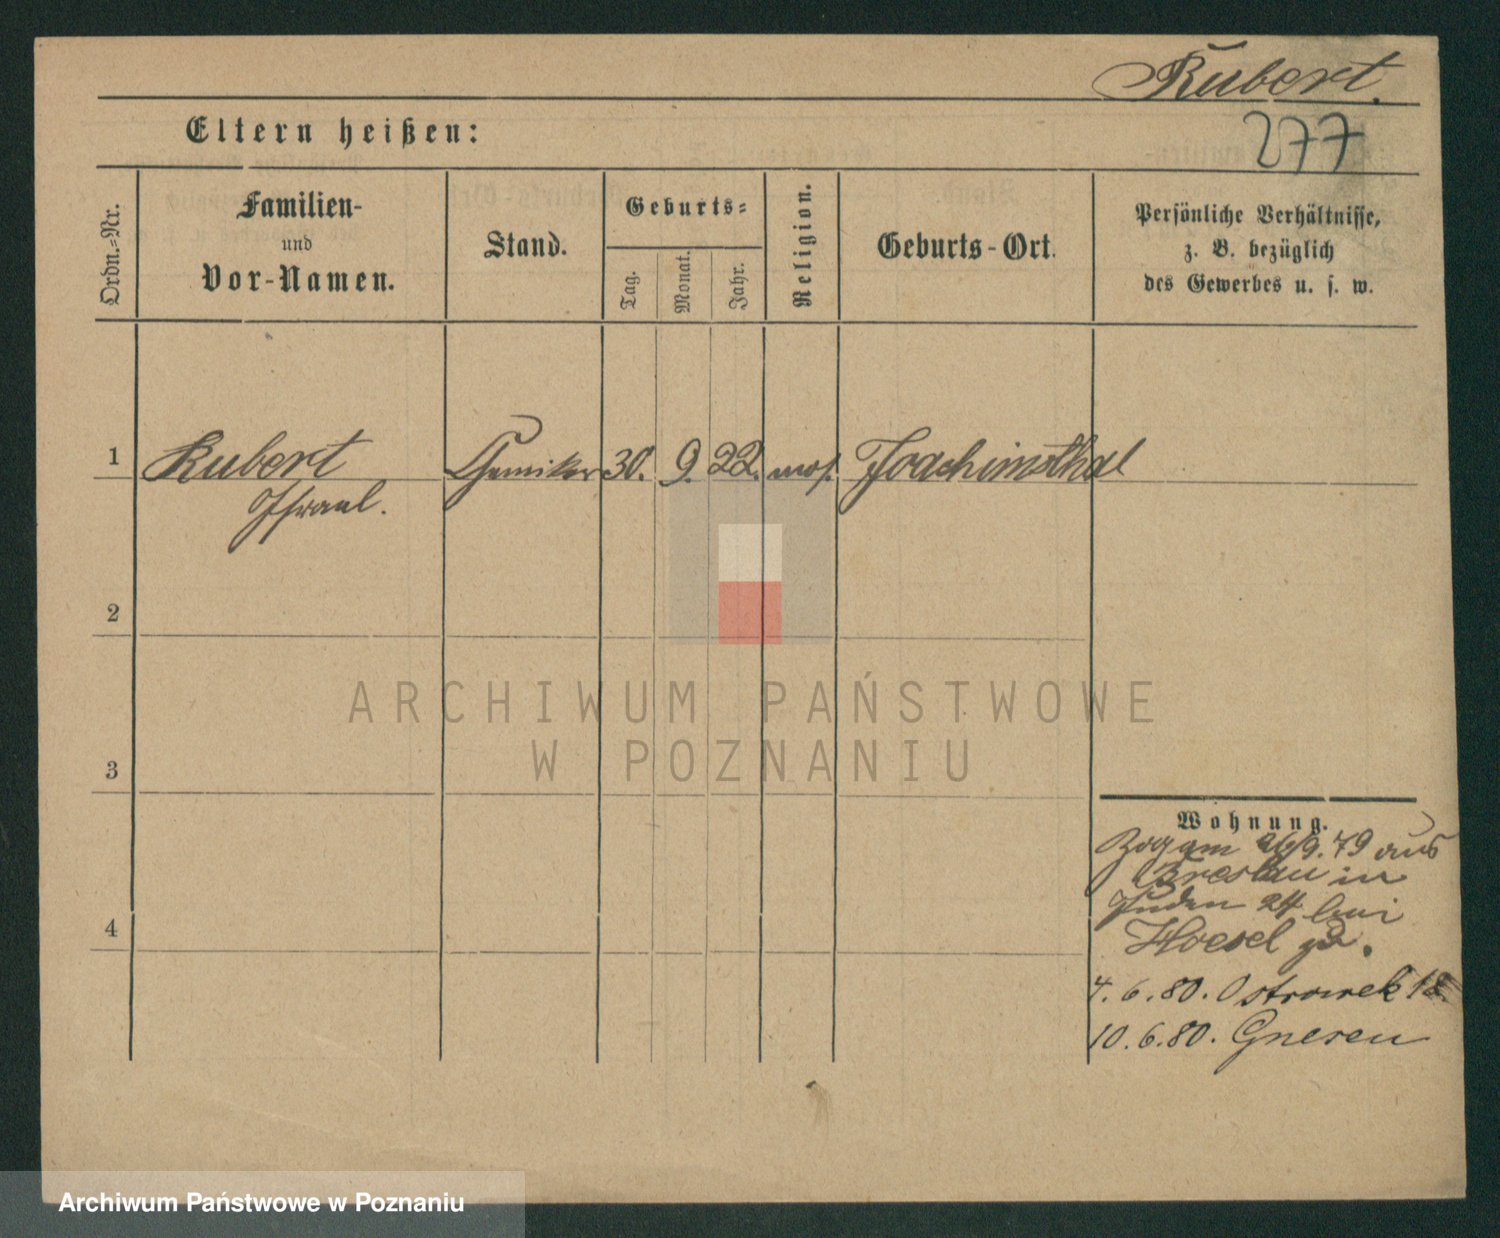 Rubert.
277
Eltern heißen:
Ordn.-Nr.
Familien-
und
Vor-Namen.
Stand.
Geburts-
Tag.
Monat.
Jahr.
Religion.
Geburts-Ort.
Persönliche Verhältnisse,
z. B. bezüglich
des Gewerbes u. s. w.
1 Rubert Chemiker 30. 9. 22. mos. Joachimsthal
Israel.
2
3
4
ARCHIWUM PAŃSTWOWE
W POZNANIU
Wohnung.
Zog am 26/9. 79 aus
Breslau in
Juden 24 bei
Hoesel zu.
4. 6. 80. Ostrowek 18.
10. 6. 80. Gnesen
Archiwum Państwowe w Poznaniu